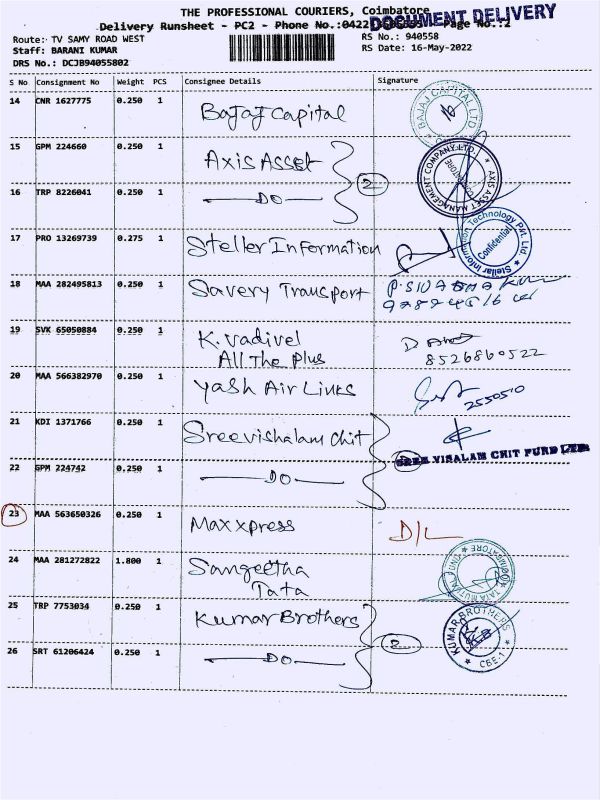 THE PROFESSIONAL COURIERS, Coimbatore
DOCUMENT DELIVERY
Delivery Runsheet - PC2 - Phone No.:0422 Page No.:2
Route: TV SAMY ROAD WEST
RS No.: 940558
Staff: BARANI KUMAR
RS Date: 16-May-2022
DRS No.: DCJB94055802
S No Consignment No Weight PCS Consignee Details Signature
14 CNR 1627775 0.250 1 Bajaj Capital
BAJAJ CAPITAL LTD
15 GPM 224660 0.250 1 Axis Asset
AXIS ASSET MANAGEMENT COMPANY LTD. COIMBATORE
16 TRP 8226041 0.250 1 DO
2
17 PRO 13269739 0.275 1 Steller Information
Stellar Information Technology Pvt. Ltd
Confidential
18 MAA 282495813 0.250 1 Savery Transport
19 SVK 65050884 0.250 1 K. Vadivel
All The Plus
8526860522
20 MAA 566382970 0.250 1 Yash Air Links
2550510
21 KDI 1371766 0.250 1 Sreevishalam Chit
SREE VISALAM CHIT FUND LTD.
22 GPM 224742 0.250 1 DO
23 MAA 563650326 0.250 1 Maxxpress
D/L
24 MAA 281272822 1.800 1 Sangeetha
Tata
TATA MUTUAL FUND COIMBATORE
25 TRP 7753034 0.250 1 Kumar Brothers
KUMAR BROTHERS
CBE-1
26 SRT 61206424 0.250 1 DO
2